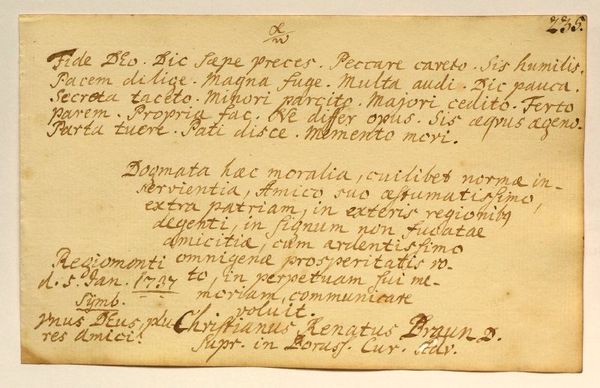 235.
α/ω
Fide DEo. Dic sæpe preces. Peccare caveto. Sis humilis.
Pacem dilige. Magna fuge. Multa audi. Dic pauca.
Secreta taceto. Minori parcito. Majori cedito. Ferto
parem. Propria fac. Ne differ opus. Sis æqvus ægeno.
Parta tuere. Pati disce. Memento mori.
Dogmata hæc moralia, cuilibet normæ in-
servientia, Amico suo æstumatissimo,
extra patriam, in exteris regionibq
degenti, in signum non fucatæ
amicitiæ, cum ardentissimo
omnigenæ prosperitatis vo-
to, in perpetuam sui me-
moriam, communicare
voluit.
Christianus Renatus Braun D.
Supr. in Boruss. Cur. Adv.
Regiomonti
d. 5. Jan. 1737
Symb.
Vnus DEus, plu
res amici.